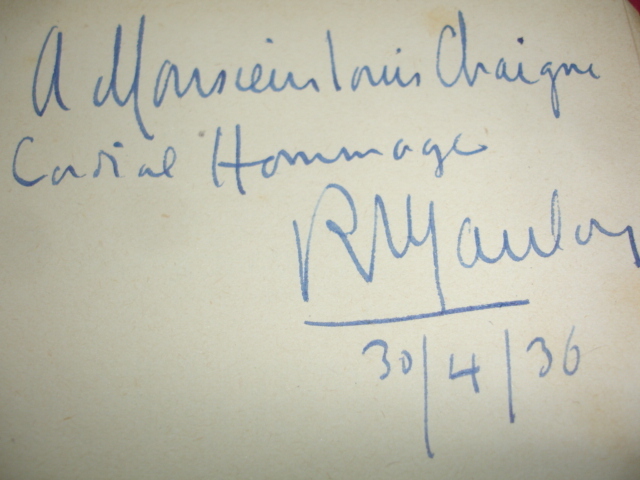 A Monsieur Louis Chaigne
Cordial Hommage
30/4/36